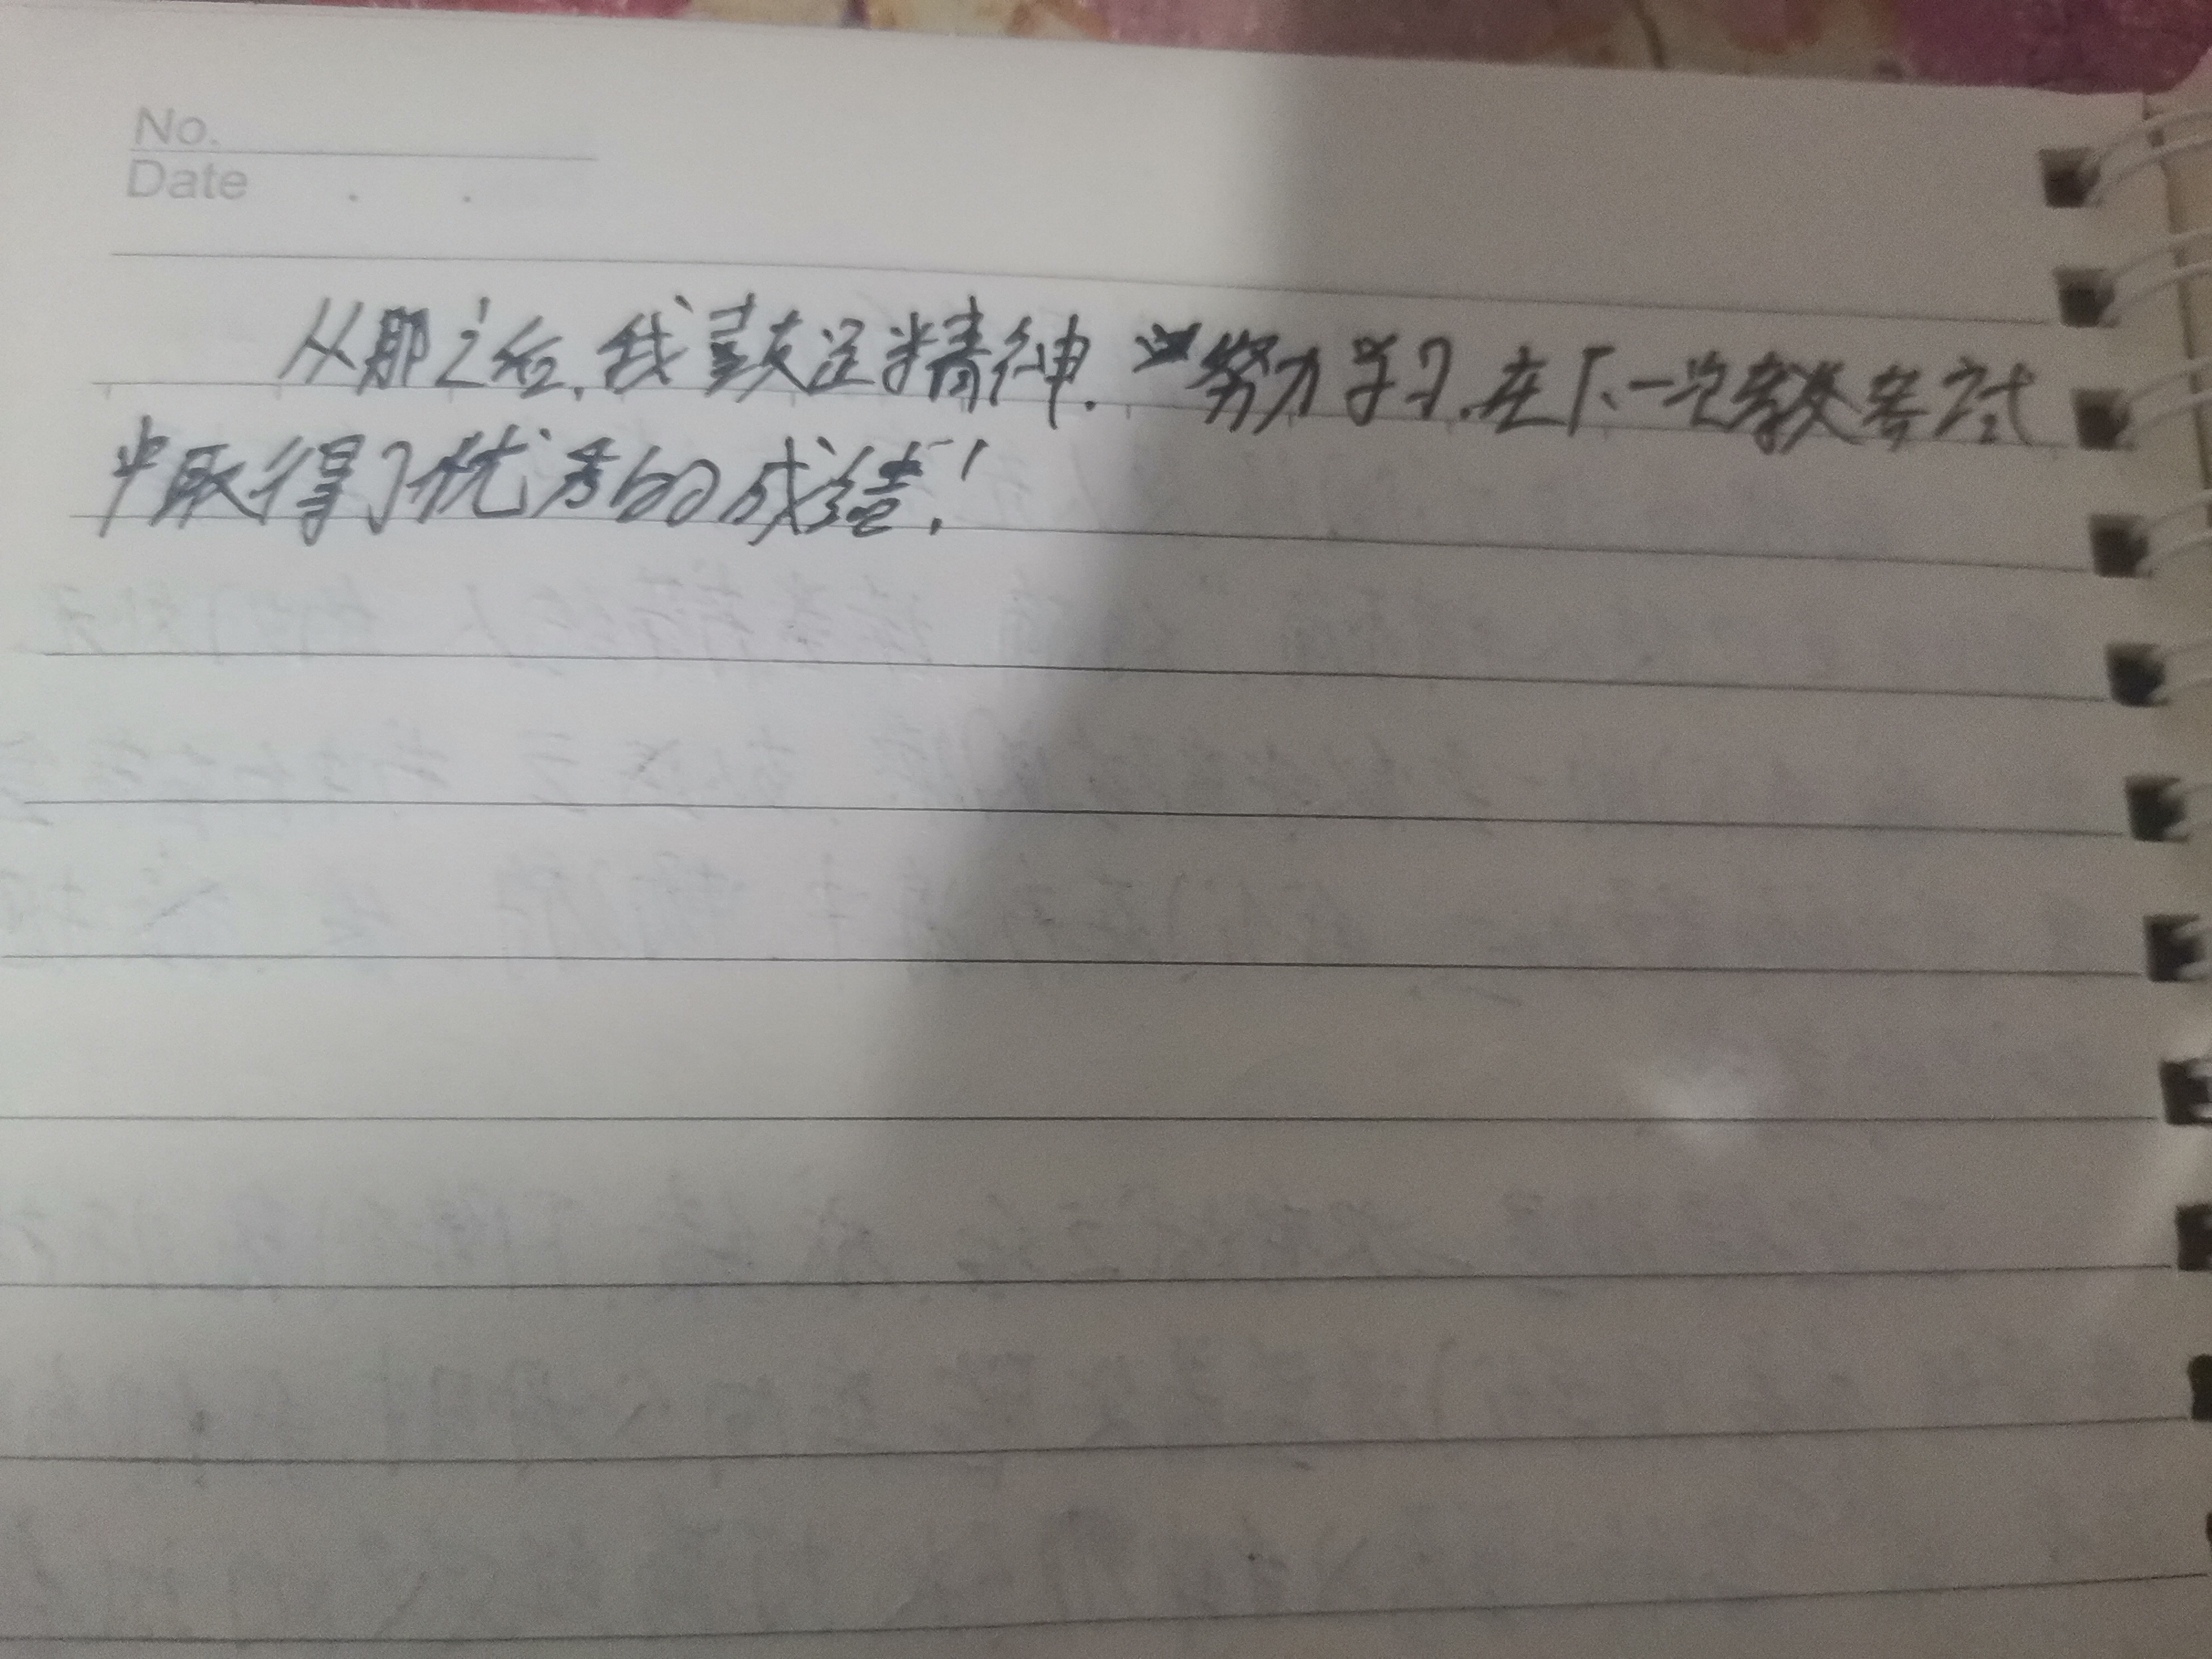 No.
Date . .
从那之后,我鼓足精神.努力学习,在下一次数学考试
中取得了优秀的成绩!